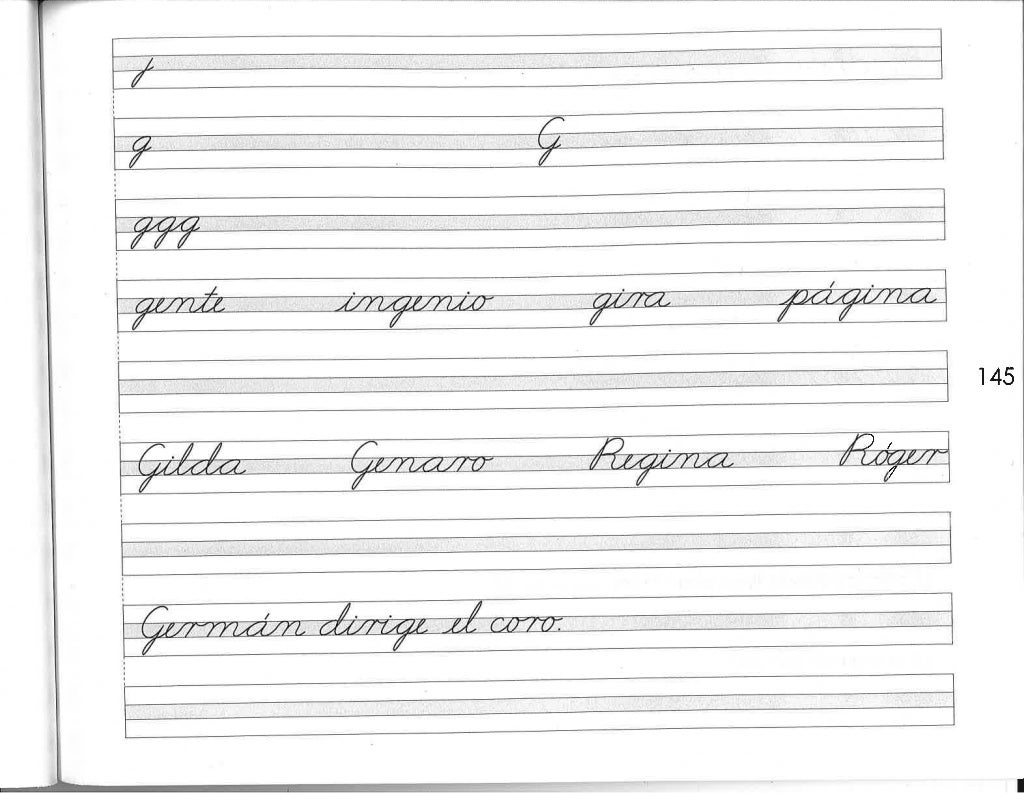 g G
ggg
gente ingenio gira página
145
Gilda Genaro Regina Róger
Germán dirige el coro.